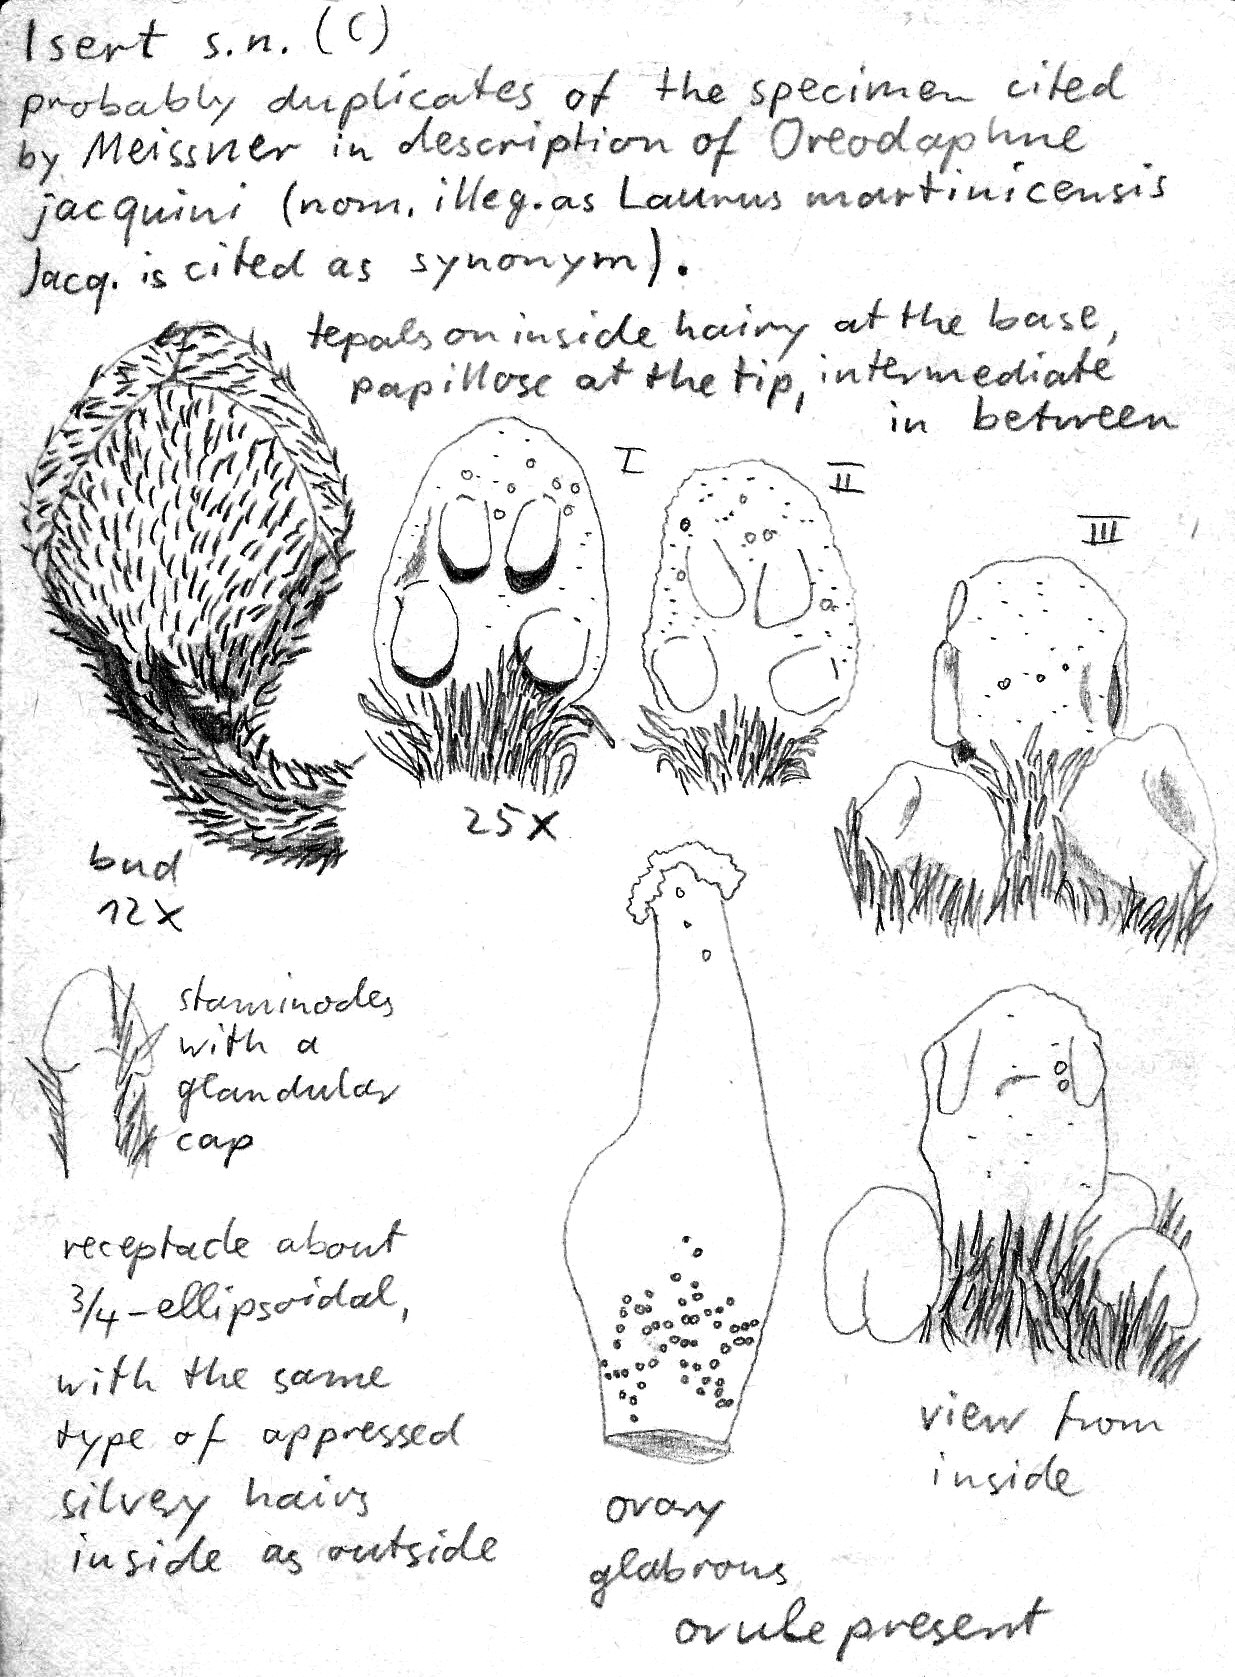 Isert s.n. (C)
probably duplicates of the specimen cited
by Meissner in description of Oreodaphne
jacquini (nom. illeg. as Laurus martinicensis
Jacq. is cited as synonym).
tepals on inside hairy at the base,
papillose at the tip, intermediate
in between
I
II
III
25x
bud
12x
staminodes
with a
glandular
cap
receptacle about
3/4-ellipsoidal,
with the same
type of appressed
silvery hairs
inside as outside
view from
inside
ovary
glabrous
ovule present